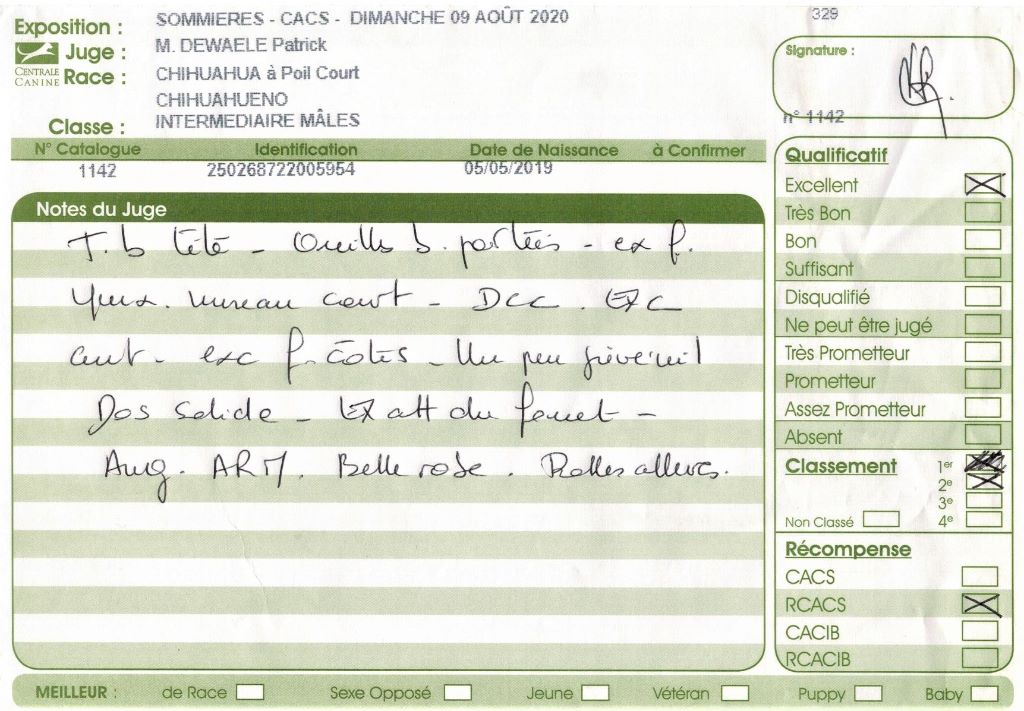 Exposition : SOMMIERES - CACS - DIMANCHE 09 AOÛT 2020
329
Juge : M. DEWAELE Patrick
CENTRALE CANINE
Race : CHIHUAHUA à Poil Court
CHIHUAHUENO
Classe : INTERMEDIAIRE MÂLES
Signature :
n° 1142
N° Catalogue Identification Date de Naissance à Confirmer
1142 250268722005954 05/05/2019
Notes du Juge
T. b tête - Oreilles b. portées - ex f.
yeux. museau court - Dcc. Exc
ant - exc f. côtes - Un peu juvénil
Dos solide - Ex att du fouet -
Ang. AR M. Belle robe. Belles allures.
Qualificatif
Excellent
Très Bon
Bon
Suffisant
Disqualifié
Ne peut être jugé
Très Prometteur
Prometteur
Assez Prometteur
Absent
Classement 1er
2e
3e
Non Classé 4e
Récompense
CACS
RCACS
CACIB
RCACIB
MEILLEUR : de Race Sexe Opposé Jeune Vétéran Puppy Baby